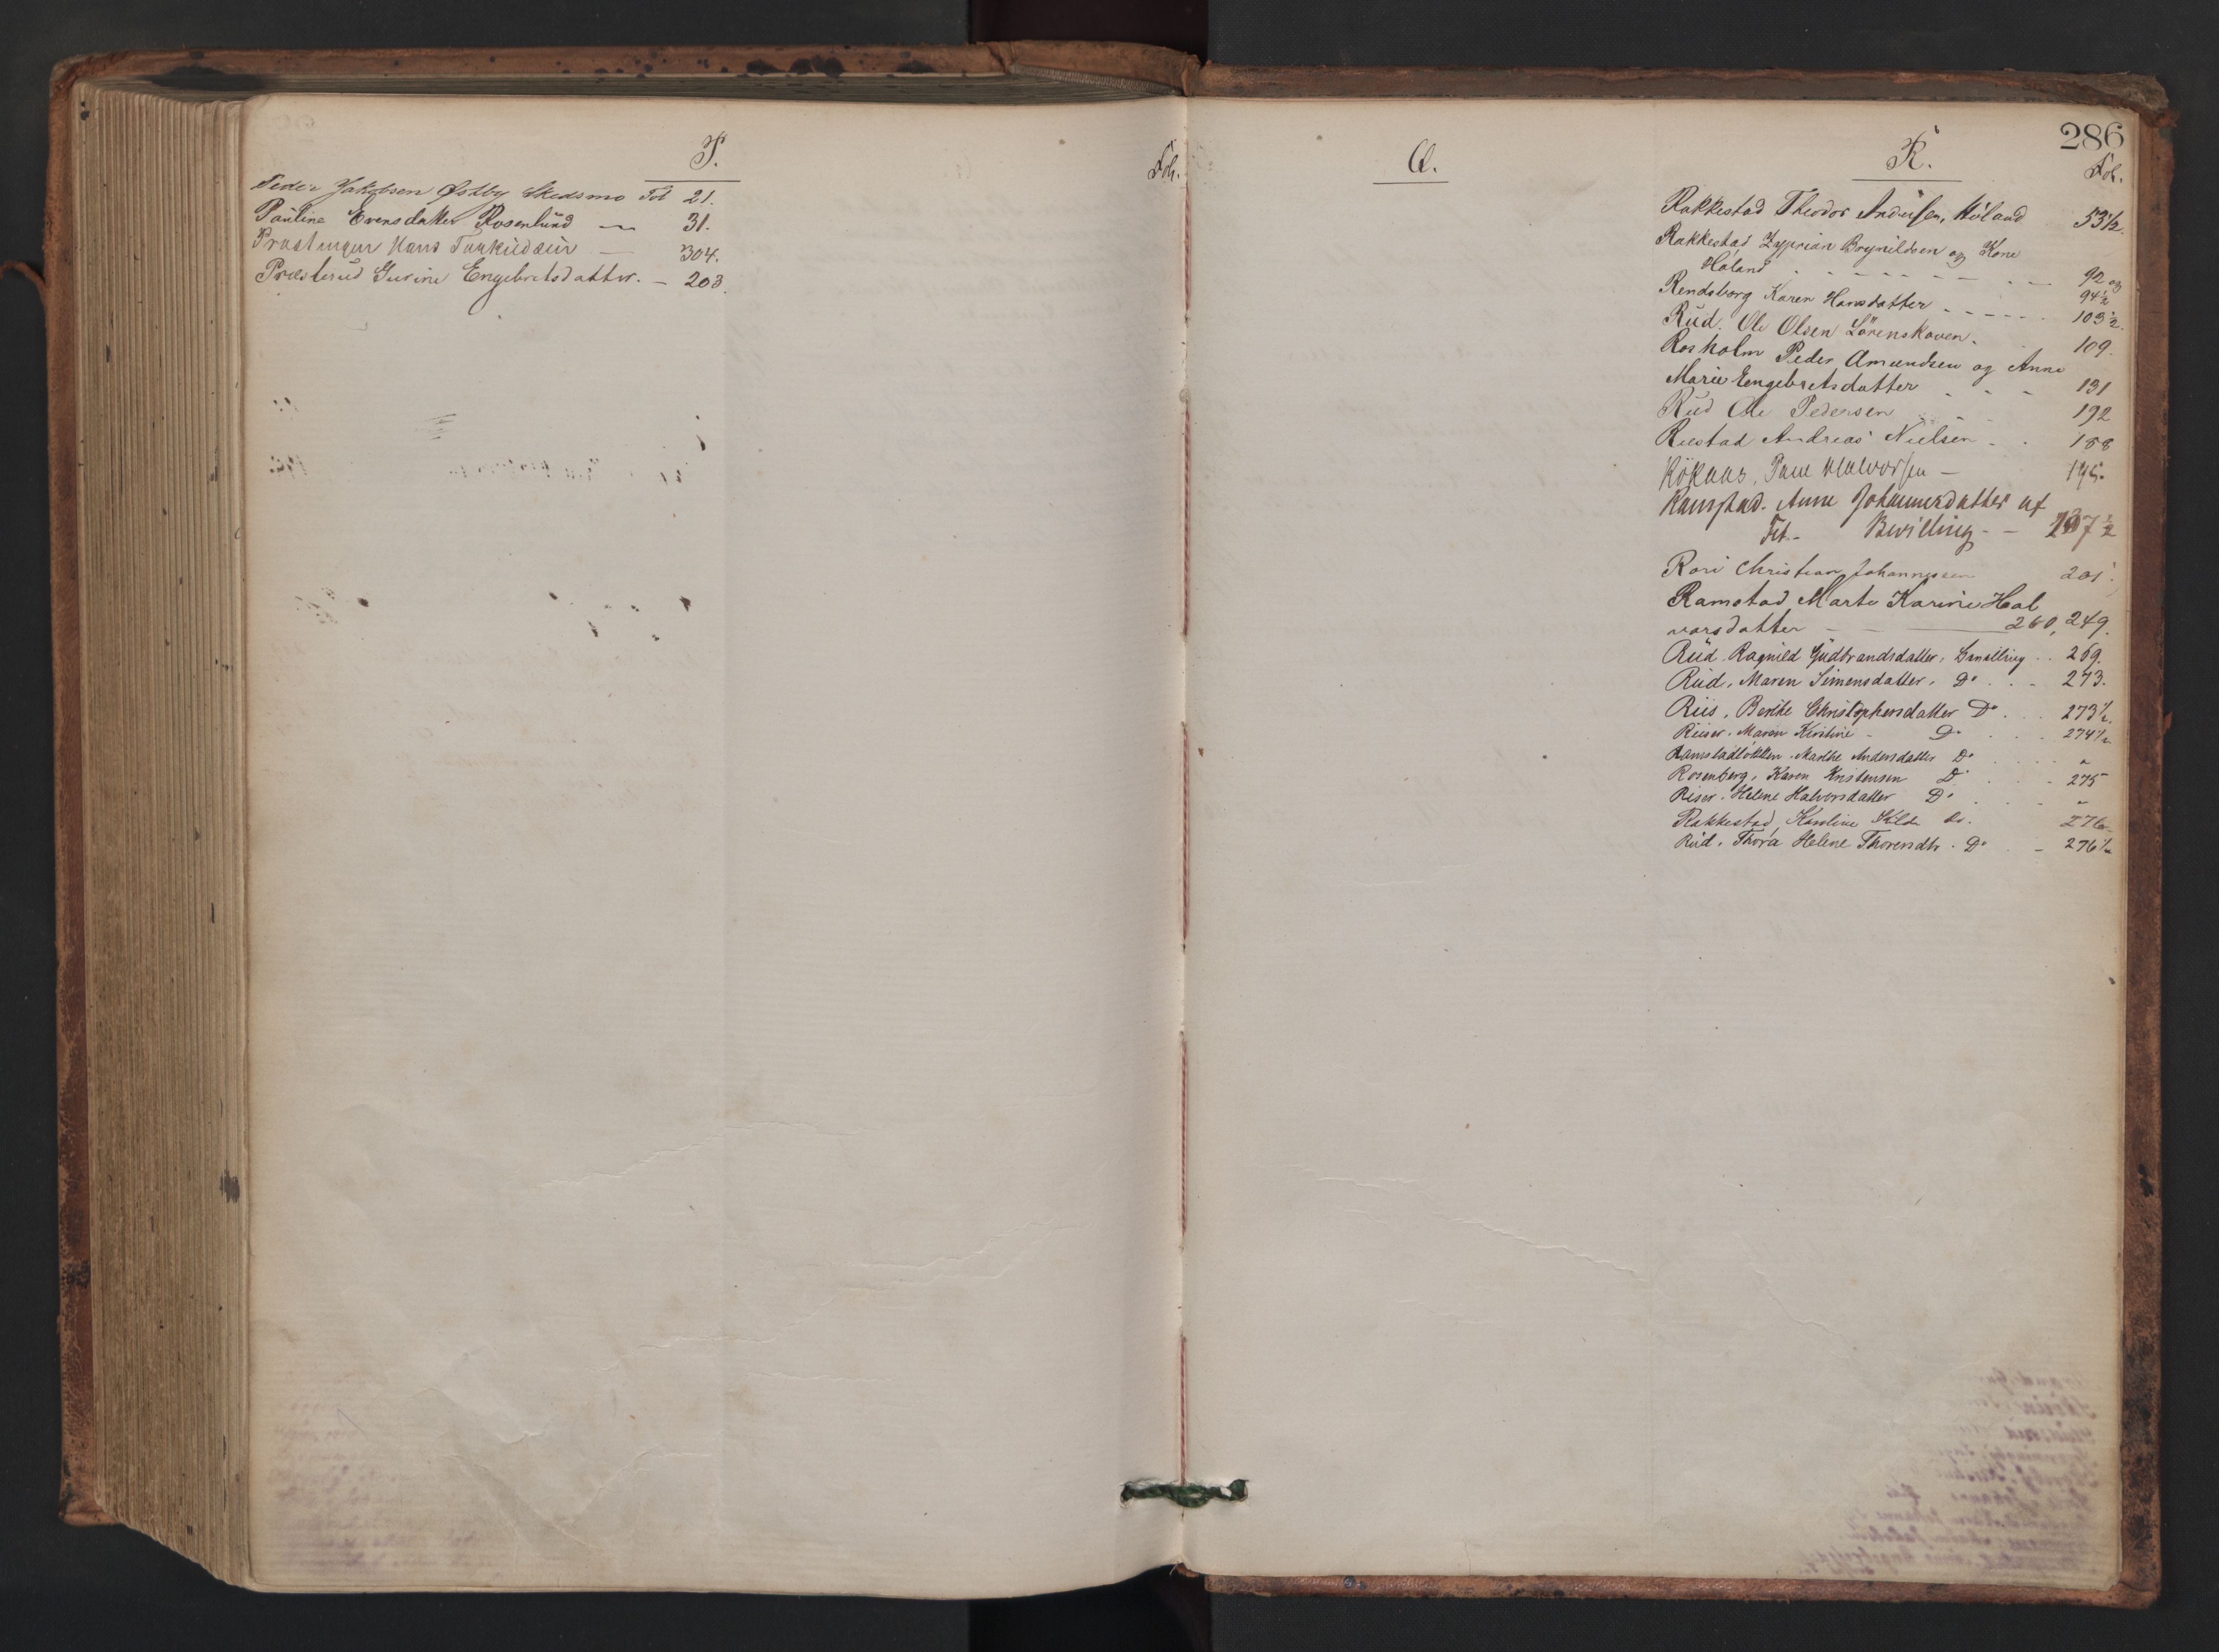 P.
Fol.
Peder Jakobsen Østby Skedsmo Fol 21.
Pauline Evensdatter Rosenlund — 31.
Hans — 304.
Præsterud Gurine Engebretsdatter. — 203.
286
Q.
R.
Fol.
Rakkestad Theodor Andersen, Höland 53½.
Rakkestad Zyprian Brynildsen og Kone
Höland - - - - - 92 og
94½
Rendsborg Karen Hansdatter - - - - - 103½.
Rud. Ole Olsen Lörenskoven. 109.
Rosholm Peder Amundsen og Anne
Marie Eengebretsdatter - - - 131
Rud Ole Pedersen 192
Andreas Nielsen - . 188
Halvorsen — 195.
Ramstad. Anne Johannesdatter af
Fet. - Bevilling - -
Christian Johannessen 201.
Ramstad Marte Karine Hal
vorsdatter — — 260, 249.
Rud. Ragnild Gudbrandsdatter, . . 269.
Rud, Maren Simensdatter, Do . . - 273.
Riis, Berthe Christophersdatter Do . . . 273½.
Riiser. Maren Kirstine - Do . . . 274½
Ramstadløkken. Marthe Andersdatter Do . . . . "
Rosenberg, Karen Kristensen Do . . . - 275
Riser. Helene Halvorsdatter Do . . . - "
Rakkestad, Karoline do. 276
Rud. Thora Helene Thorensdtr. Do . . - 276½